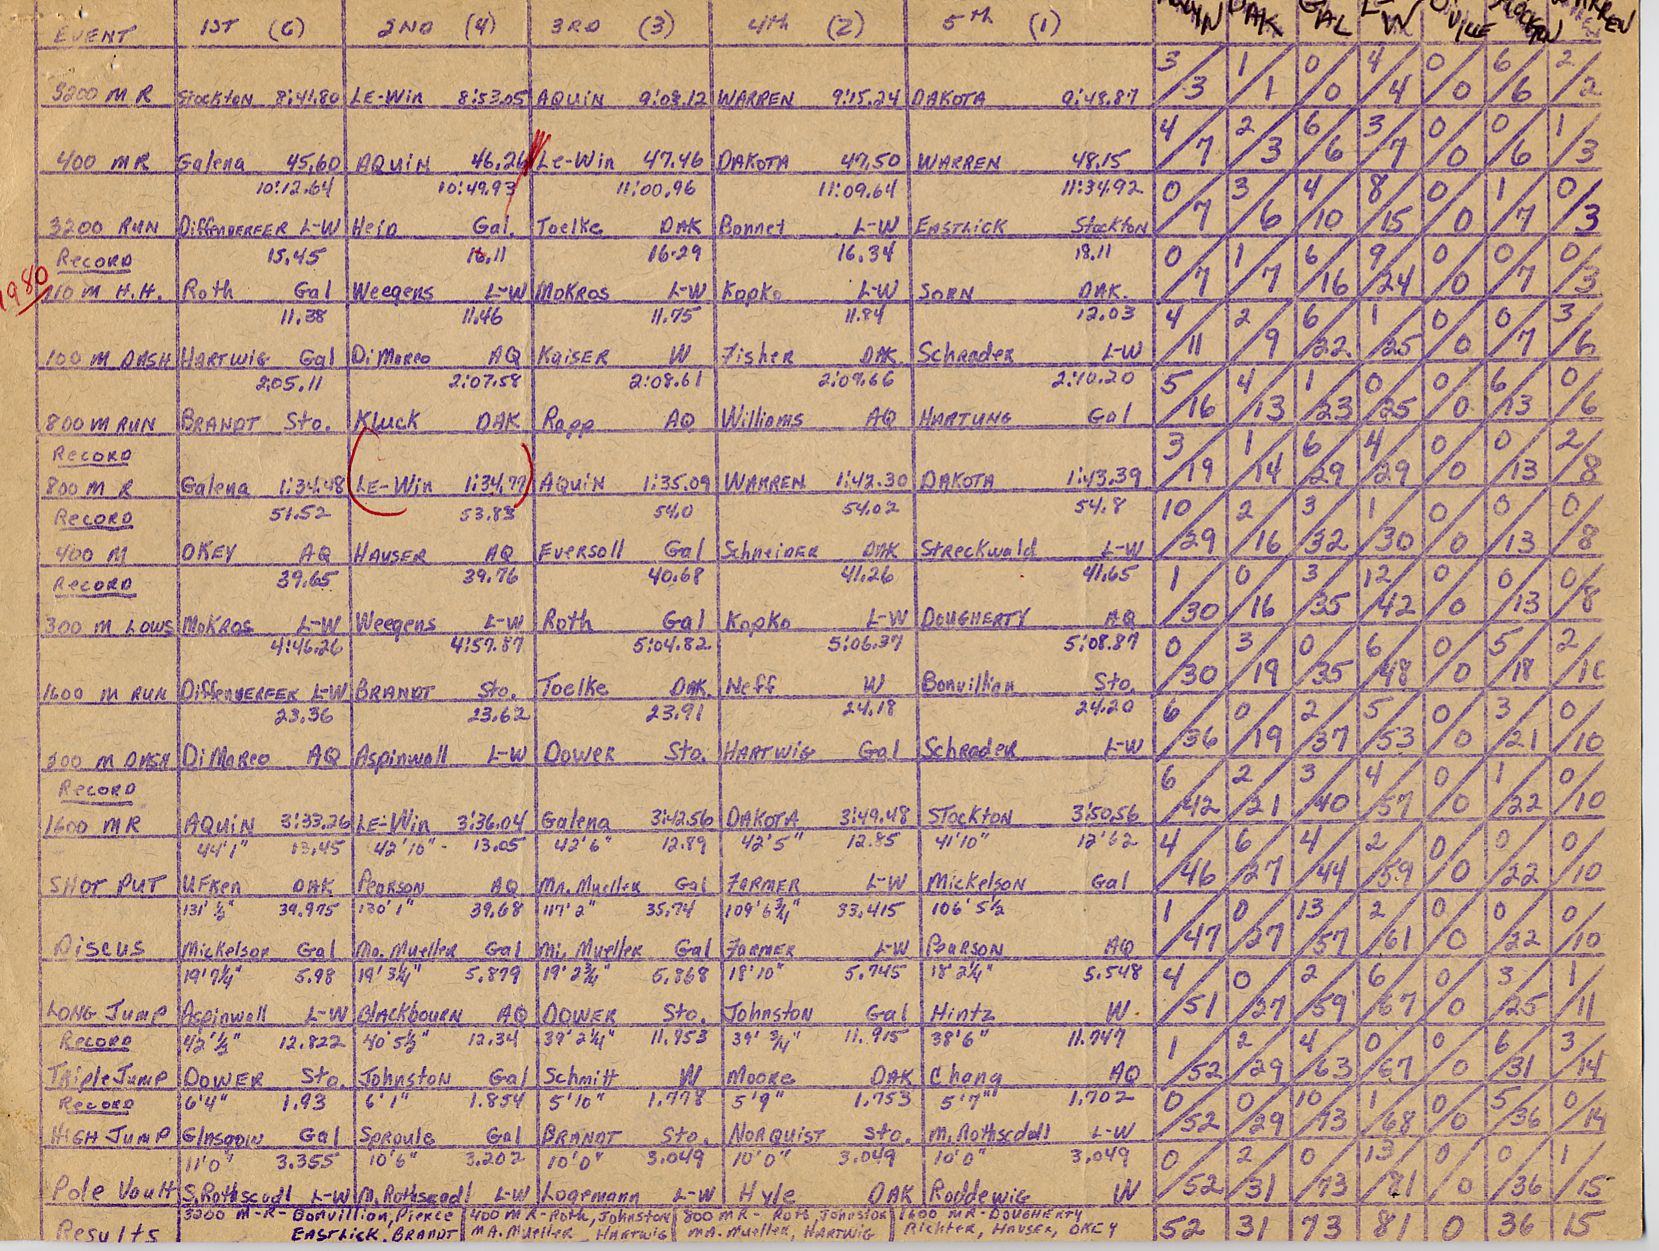 EVENT 1ST (6) 2ND (4) 3RD (3) 4TH (2) 5TH (1) DAK GAL L-W
3200 M R Stockton 8:41.80 LE-Win 8:53.05 AQUIN 9:03.12 WARREN 9:15.24 DAKOTA 9:48.87 3/3 1/1 0/0 4/4 0/0 6/6 2/2
400 MR Galena 45.60 AQUIN 46.26 LE-Win 47.46 DAKOTA 47.50 WARREN 48.15 4/7 2/3 6/6 3/7 0/0 0/6 1/3
10:12.64 10:49.93 11:00.96 11:09.64 11:34.92
3200 RUN DiffENDERFER L-W Hein Gal. Toelke DAK Bonnet L-W EASTLICK Stockton 0/7 3/6 4/10 8/15 0/0 1/7 0/3
Record 15.45 16.11 16.29 16.34 18.11
1980
110 M H.H. Roth Gal Weegens L-W MOKROS L-W Kopko L-W SORN DAK. 0/7 1/7 6/16 9/24 0/0 0/7 0/3
11.38 11.46 11.75 11.84 12.03
100 M DASH HARTWIG Gal DiMarco AQ KAISER W Fisher DAK Schrader L-W 4/11 2/9 6/22 1/25 0/0 0/7 3/6
2:05.11 2:07.58 2:08.61 2:09.66 2:10.20
800 M RUN BRANDT Sto. Kluck DAK Rapp AQ Williams AQ HARTUNG Gal 5/16 4/13 1/23 0/25 0/0 6/13 0/6
Record
800 M R Galena 1:34.48 LE-Win 1:34.77 AQUIN 1:35.09 WARREN 1:42.30 DAKOTA 1:43.39 3/19 1/14 6/29 4/29 0/0 0/13 2/8
Record 51.52 53.83 54.0 54.02 54.8
400 M OKEY AQ HAUSER AQ Eversoll Gal SchneiDER DAK Streckwald L-W 10/29 2/16 3/32 1/30 0/0 0/13 0/8
Record 39.65 39.76 40.68 41.26 41.65
300 M LOWS MOKROS L-W Weegens L-W Roth Gal Kopko L-W DOUGHERTY AQ 1/30 0/16 3/35 12/42 0/0 0/13 0/8
4:46.26 4:57.87 5:04.82 5:06.37 5:08.87
1600 M RUN DiffENDERFER L-W BRANDT Sto. Toelke DAK Neff W Bonvillian Sto. 0/30 3/19 0/35 6/48 0/0 5/18 2/10
23.36 23.62 23.91 24.18 24.20
200 M DASH DiMarco AQ Aspinwall L-W DOWER Sto. HARTWIG Gal Schrader L-W 6/36 0/19 2/37 5/53 0/0 3/21 0/10
Record
1600 MR AQUIN 3:33.26 LE-Win 3:36.04 Galena 3:42.56 DAKOTA 3:49.48 STockton 3:50.56 6/42 2/21 3/40 4/57 0/0 1/22 0/10
44'1" 13.45 42'10" 13.05 42'6" 12.89 42'5" 12.85 41'10" 12'62
SHOT PUT UFKEN DAK PEARSON AQ MA. Mueller Gal FARMER L-W Mickelson Gal 4/46 6/27 4/44 2/59 0/0 0/22 0/10
131'½" 39.975 130'1" 39.68 117'2" 35.74 109'6¾" 33.415 106'5½
Discus Mickelson Gal Ma. Mueller Gal Mi. Mueller Gal FARMER L-W PEARSON AQ 1/47 0/27 13/57 2/61 0/0 0/22 0/10
19'7¼" 5.98 19'3¼" 5.879 19'2¾" 5.868 18'10" 5.745 18'2¼" 5.548
LONG JUMP Aspinwall L-W Blackbourn AQ DOWER Sto. Johnston Gal Hintz W 4/51 0/27 2/59 6/67 0/0 3/25 1/11
Record 42'½" 12.822 40'5½" 12.34 39'2¼" 11.953 39'¾" 11.915 38'6" 11.747
Triple Jump DOWER Sto. Johnston Gal Schmitt W Moore DAK Chang AQ 1/52 2/29 4/63 0/67 0/0 6/31 3/14
Record 6'4" 1.93 6'1" 1.854 5'10" 1.778 5'9" 1.753 5'7" 1.702
HIGH JUMP Gal Sproule Gal BRANDT Sto. NORQUIST Sto. L-W 0/52 0/29 10/73 1/68 0/0 5/36 0/14
11'0" 3.355 10'6" 3.202 10'0" 3.049 10'0" 3.049 10'0" 3.049
Pole Vault L-W L-W Logemann L-W Hyle DAK Roddewig W 0/52 2/31 0/73 13/81 0/0 0/36 1/15
3200 M-R- Bonvillion, Pierce 400 MR-Roth, Johnston 800 MR- Roth Johnston 1600 MR-DOUGHERTY
Results EASTLICK, BRANDT MA. Mueller HARTWIG MA. Mueller, HARTWIG Richter, Hauser, OKEY 52 31 73 81 0 36 15